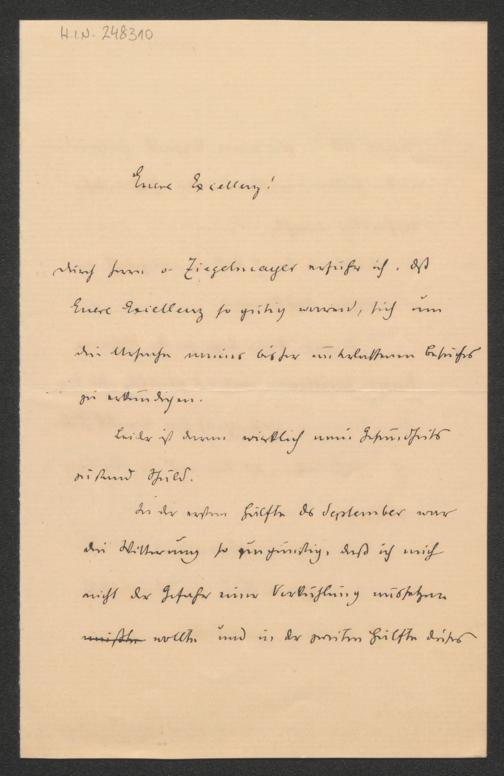 H.I.N. 248310
Euere Excellenz!
Durch Herrn v. Ziegelmayer erfuhr ich, daß
Euere Excellenz so gütig waren, sich um
die Ursache meines bisher unterlassenen Besuches
zu erkundigen.
Leider ist daran wirklich mein Gesundheits
zustand Schuld.
In der ersten Hälfte des September war
die Witterung so ungünstig, daß ich mich
nicht der Gefahr einer Verkühlung aussetzen
mußte wollte und in der zweiten Hälfte dieses